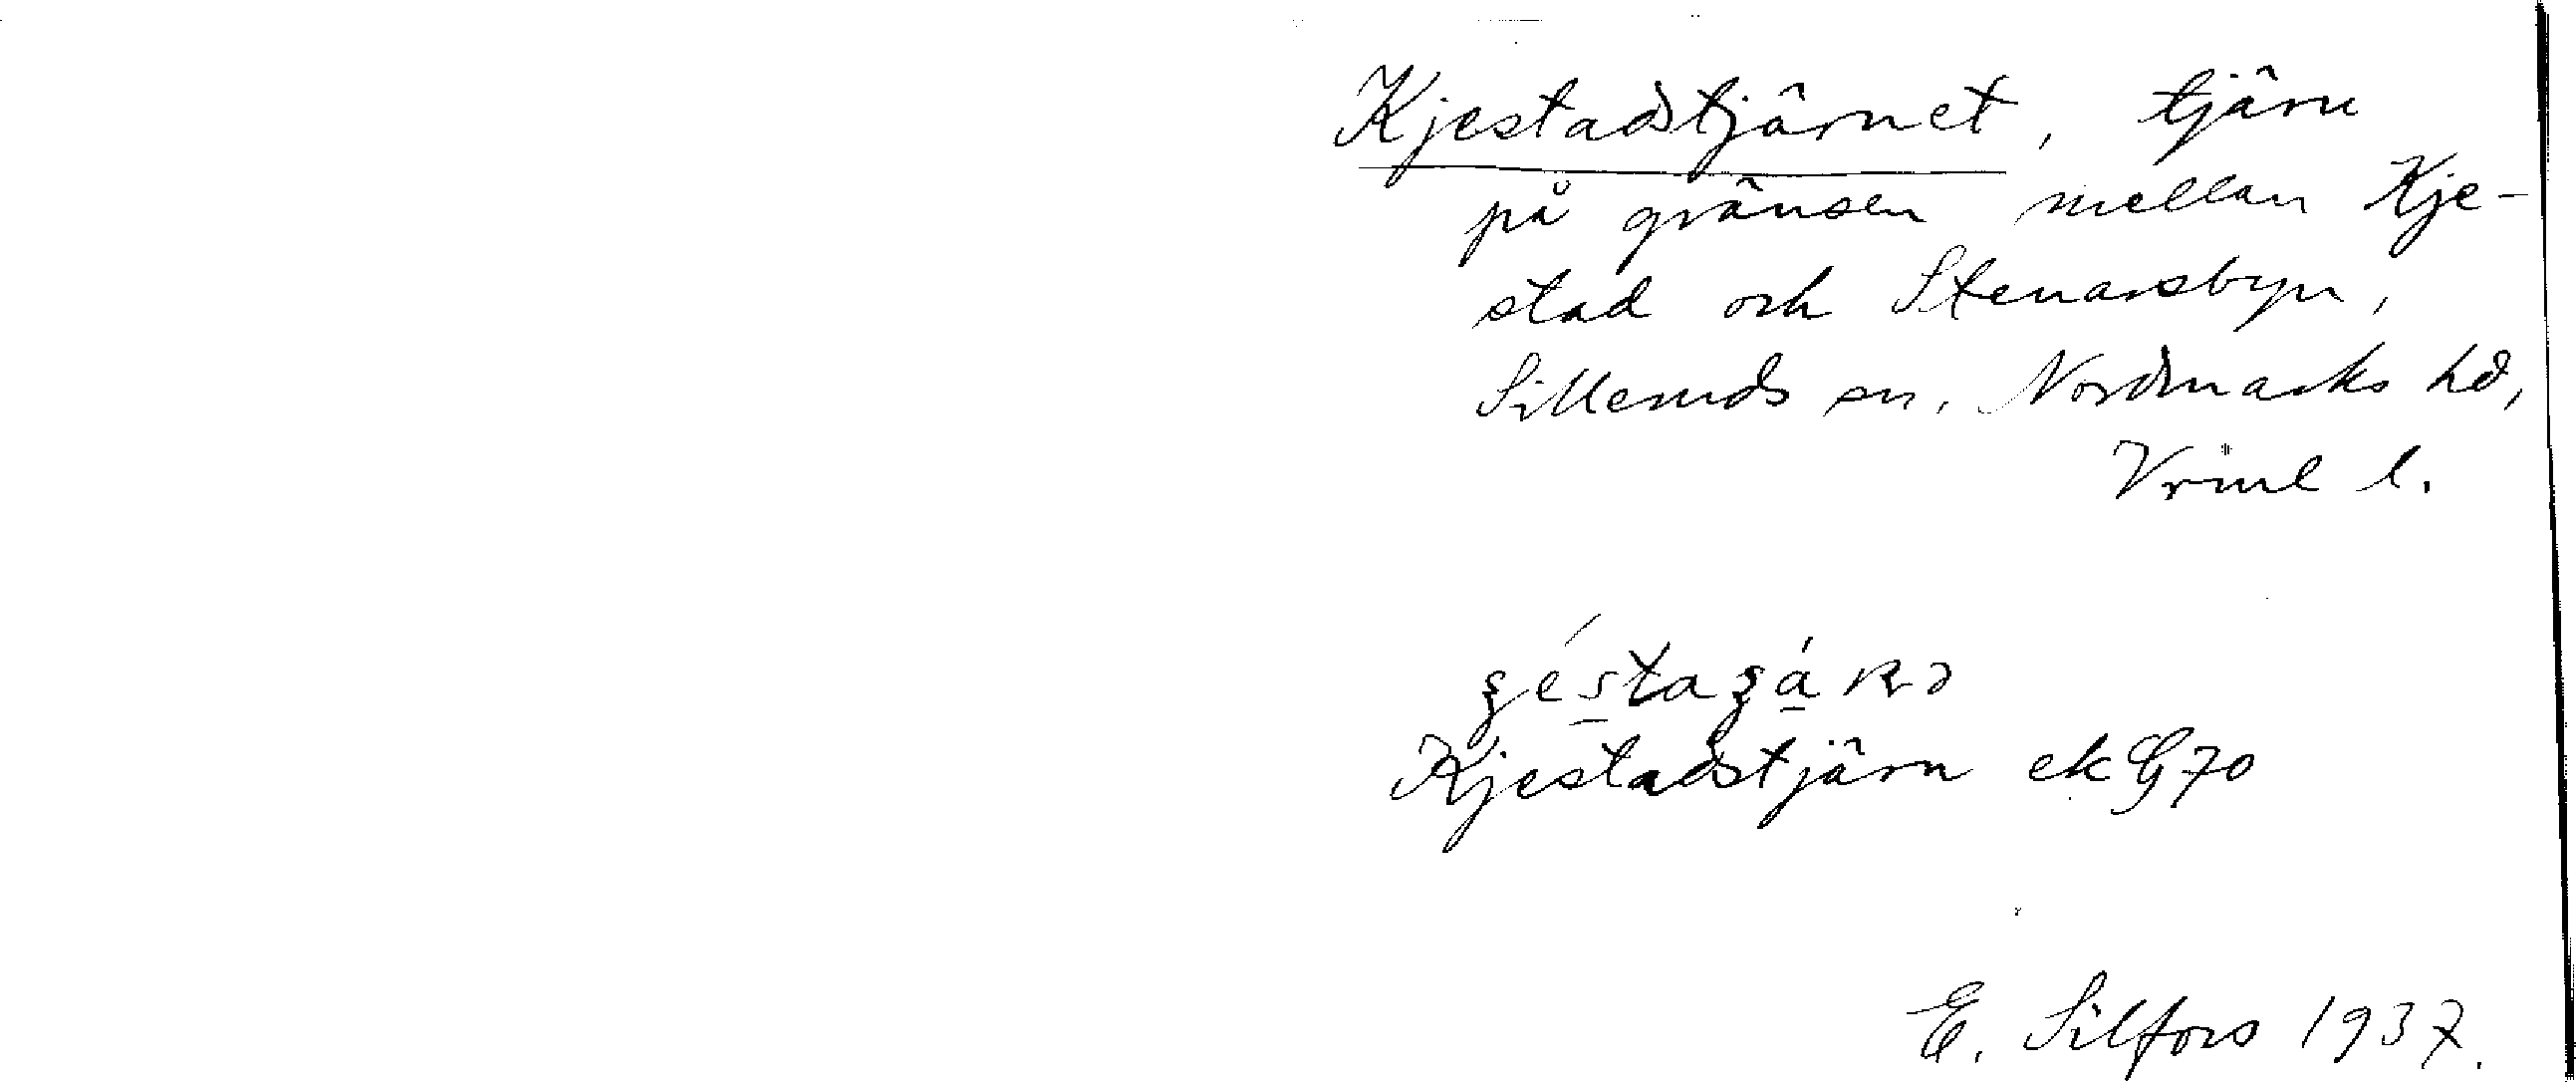 Kjestadstjärnet, tjärn
på gränsen mellan Kje-
stad och Stenarsbyn,
Silleruds sn, Nordmarks hd,
Vrml l.
Kjestadstjärn ek G70
E. Silfors 1937.